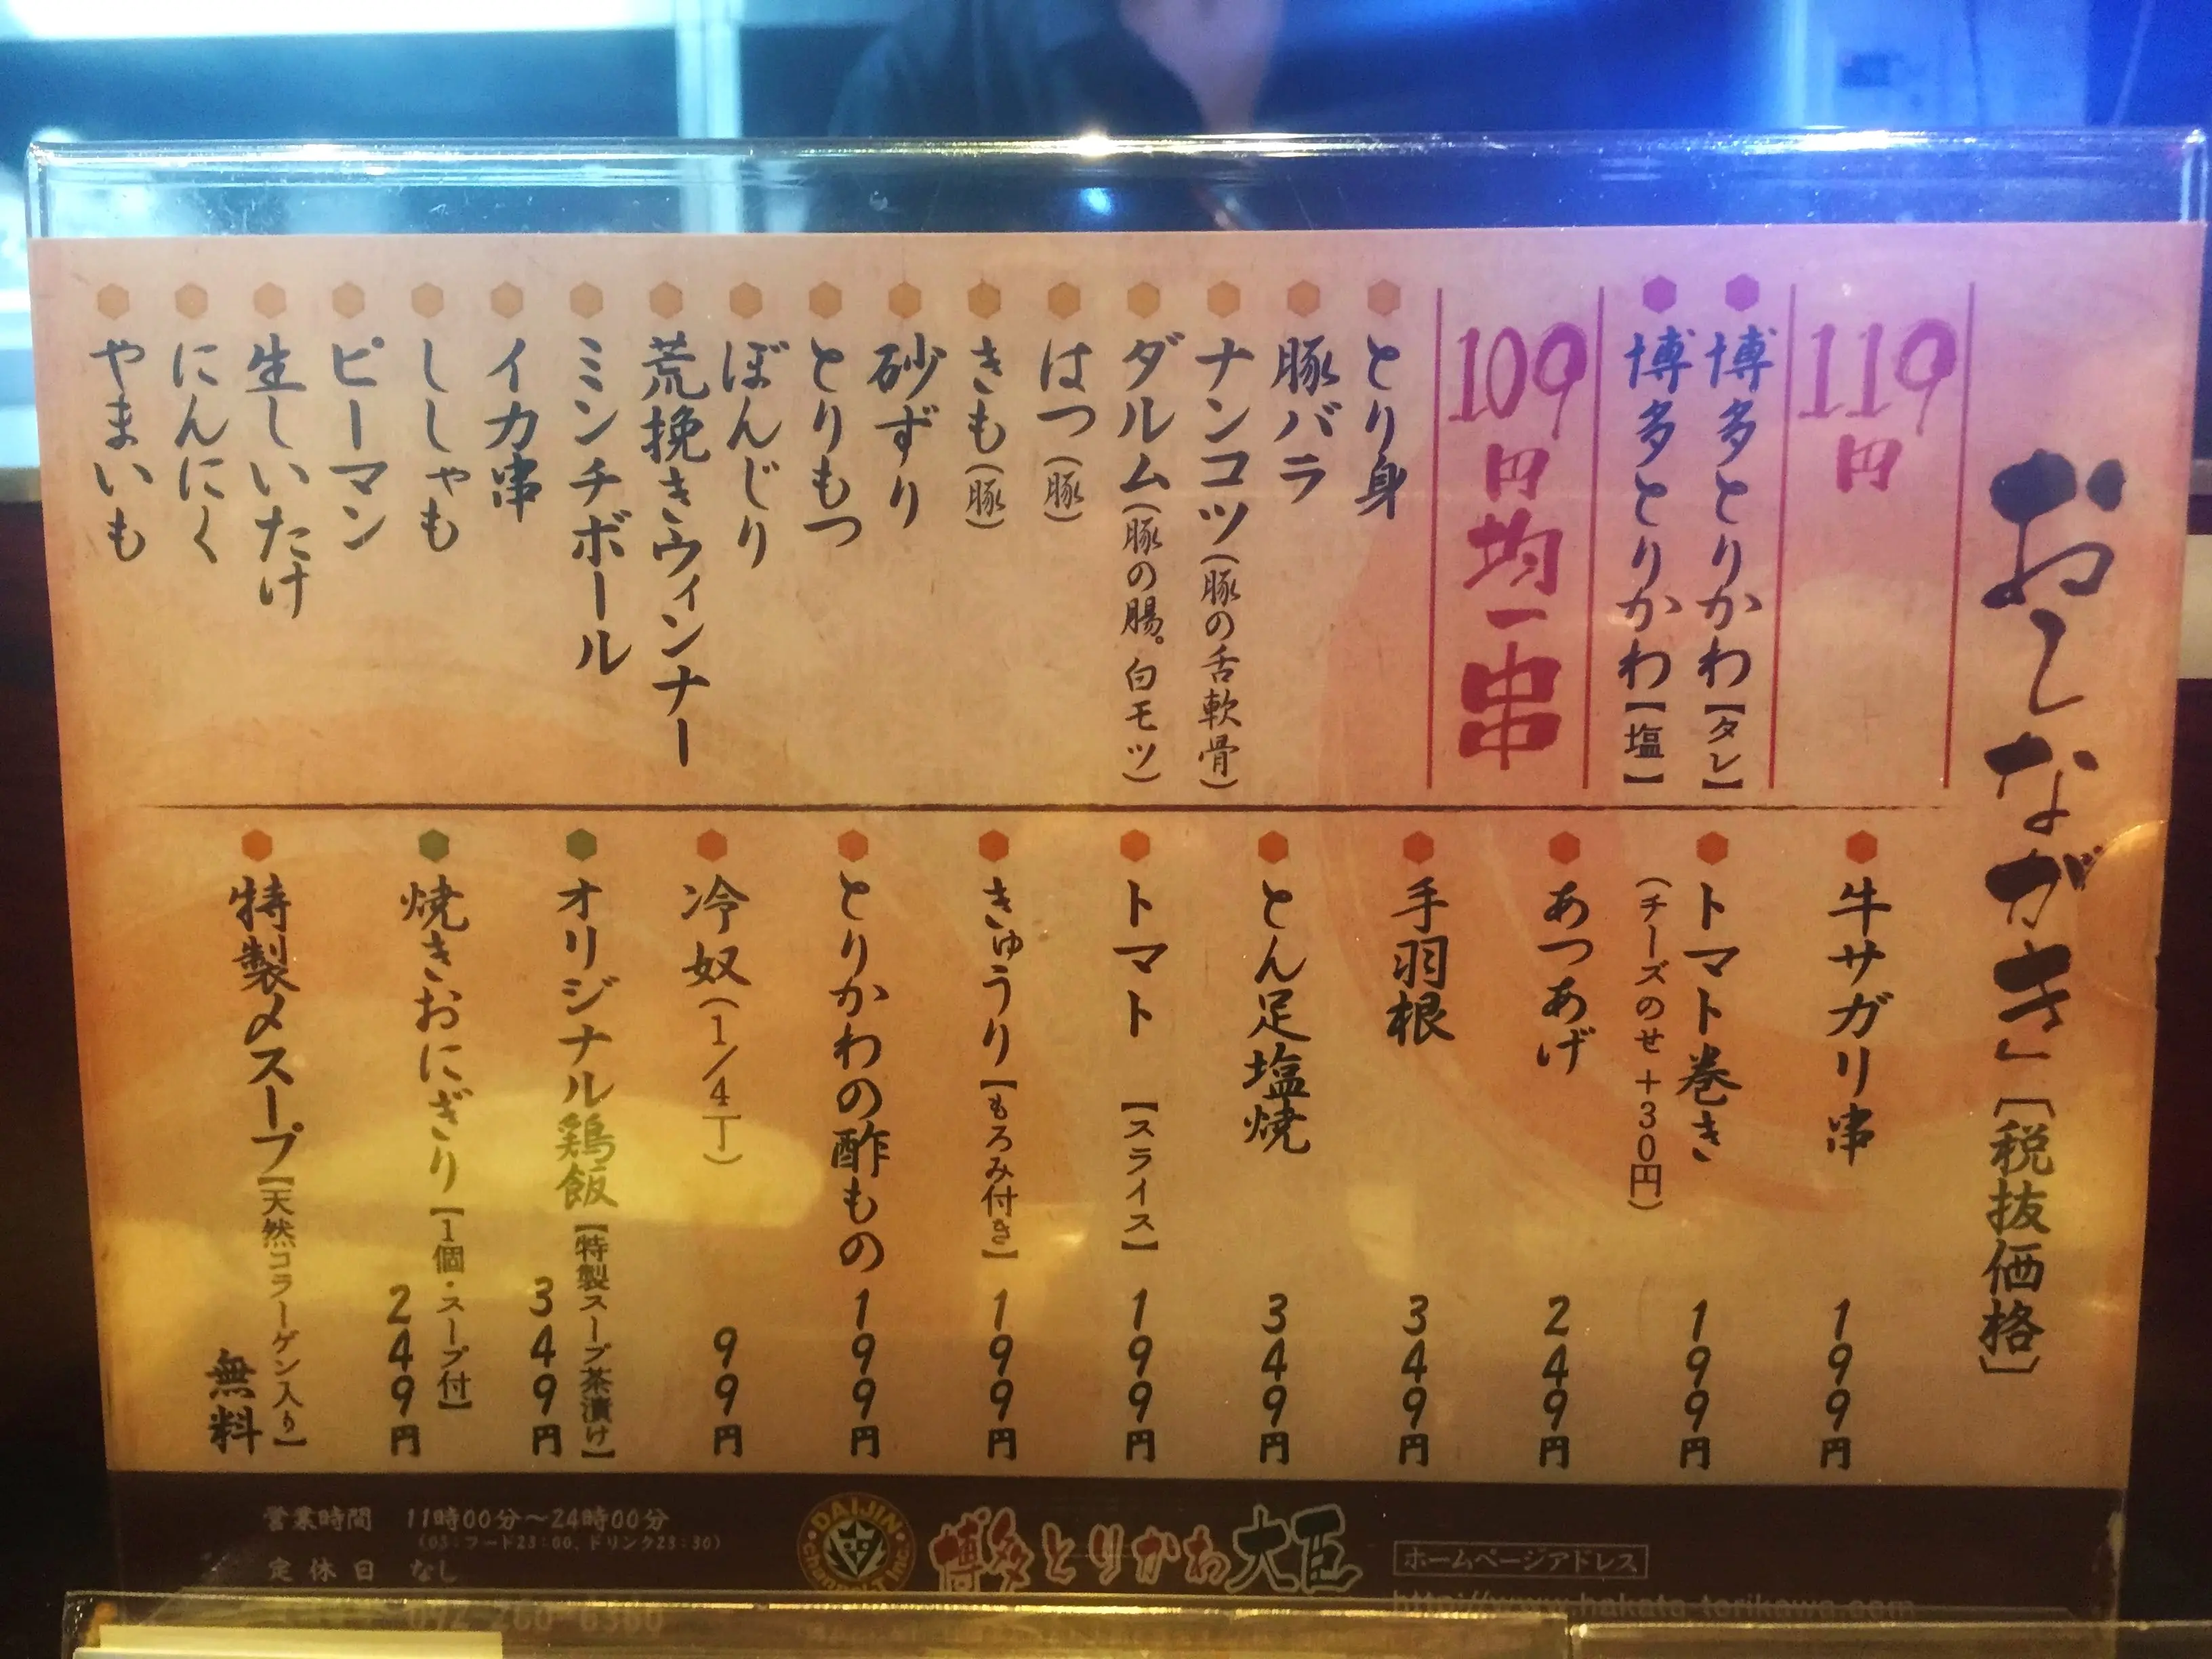 おしながき」〔税抜価格〕
119円
博多とりかわ【タレ】
博多とりかわ【塩】
109円均一串
とり身
豚バラ
ナンコツ(豚の舌軟骨)
ダルム(豚の腸。白モツ)
はつ(豚)
きも(豚)
砂ずり
とりもつ
ぼんじり
荒挽きウィンナー
ミンチボール
イカ串
ししゃも
ピーマン
生しいたけ
にんにく
やまいも
牛サガリ串 199円
トマト巻き 199円
(チーズのせ+30円)
あつあげ 249円
手羽根 349円
とん足塩焼 349円
トマト【スライス】 199円
きゅうり【もろみ付き】 199円
とりかわの酢もの 199円
冷奴(1/4丁) 99円
オリジナル鶏飯【特製スープ茶漬け】 349円
焼きおにぎり【1個・スープ付】 249円
特製〆スープ【天然コラーゲン入り】 無料
営業時間 11時00分〜24時00分
(OS:フード23:00、ドリンク23:30)
定休日 なし
092-260-6360
DAIJIN
博多とりかわ大臣
ホームページアドレス
http://www.hakata-torikawa.com